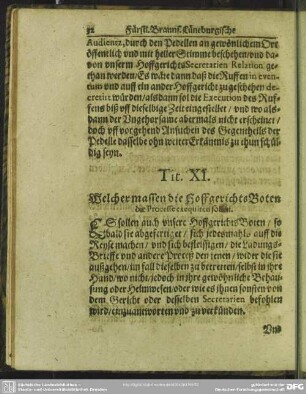 32 Fürstl. Braunſ. Lüneburgiſche
Audientz, durch den Pedellen an gewönlichem Ort
öffentlich und mit heller Stimme beſchehen / und da-
von unſerm Hoffgerichts Secretarien Relation ge-
than werden / Es wäre dann daß die Ruffen in even-
tum und auff ein ander Hoffgericht zugeſchehen de-
cretirt würden / alsdann ſol die Execution des Ruf-
fens biß uff dieſelbige Zeit eingeſtellet / und wo als-
dann der Ungehorſame abermals nicht erſcheinet /
doch uff vorgehend Anſuchen des Gegentheils der
Pedelle daſſelbe ohn weiter Erkäntnis zu thun ſchül-
dig ſeyn.
Tit. XI.
Welcher maſſen die Hoffgerichts Boten
die Proceſſe exequiren ſollen.
ES ſollen auch unſere Hoffgerichts Boten / ſo
bald ſie abgefertiget / ſich jedesmahls auff die
Reyſe machen / und ſich befleiſſigen / die Ladungs-
Brieffe und andere Proceß den jenen / wider die ſie
außgehen / im fall dieſelben zu betreten / ſelbſt in ihre
Hand / wo nicht / jedoch in ihre gewöhnliche Behau-
ſung oder Heimweſen / oder wie es ihnen ſonſten von
dem Gericht oder deſſelben Secretarien befohlen
wird / einzuantworten und zu verkünden.
Und